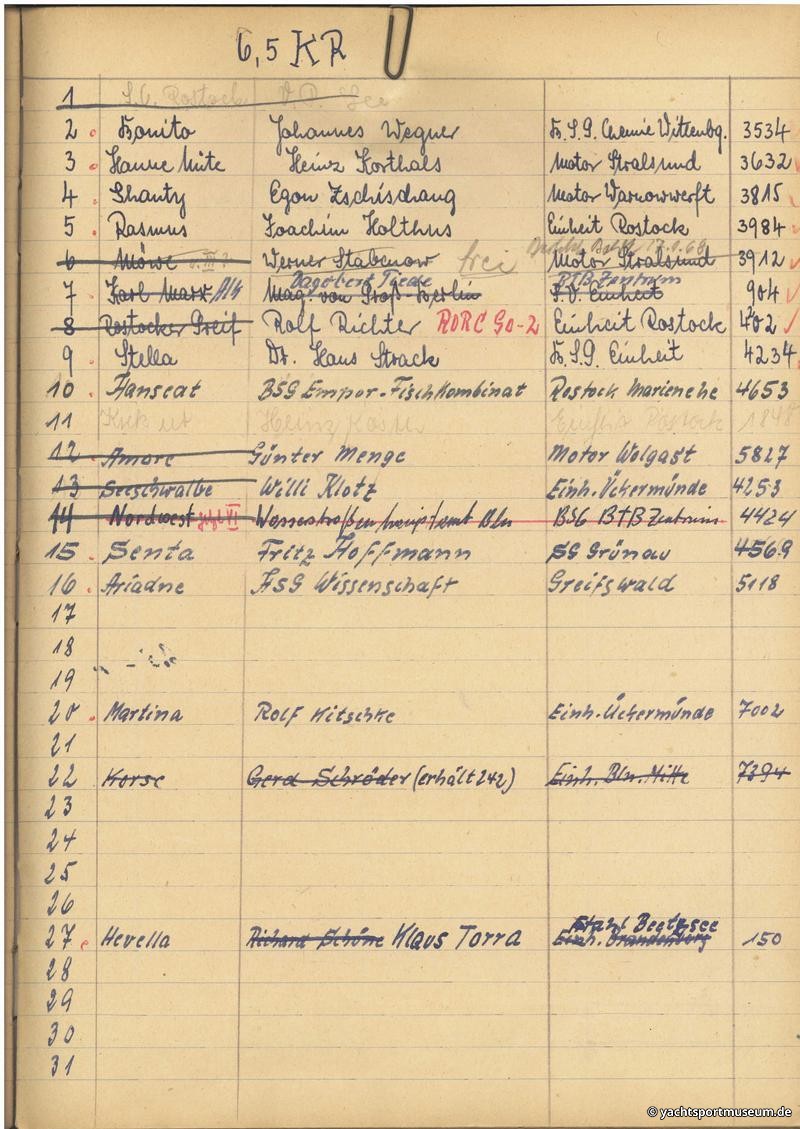 6,5 KR
1 S.C. Rostock V.P. See
2 Bonito Johannes Wegner B.S.G. Chemie Wittenbg. 3534
3 Hanne Nüte Heinz Korthals Motor Stralsund 3632
4 Shanty Egon Zschischang Motor Warnowwerft 3815
5 Rasmus Joachim Holthus Einheit Rostock 3984
6 Möwe Werner Stabenow frei Motor Stralsund 3912
Dagobert Tiede BTB Zentrum
7 Karl Marx Mag. von Groß-Berlin S.V. Einheit 904
8 Rostocker Greif Rolf Richter RORC GO-2 Einheit Rostock 402
9 Stella Dr. Hans Strack B.S.G. Einheit 4234
10 Hanseat BSG Empor-Fischkombinat Rostock Marienehe 4653
11 Heinz Köster Einheit Rostock 1848
12 Amore Günter Menge Motor Wolgast 5827
13 Seeschwalbe Willi Klotz Einh. Ückermünde 4253
14 Nordwest jetzt VI Wasserstraßenhauptamt Bln BSG BTB Zentrum 4424
15 Senta Fritz Hoffmann SG Grünau 4569
16 Ariadne HSG Wissenschaft Greifswald 5118
17
18
19
20 Martina Rolf Kitschke Einh. Ückermünde 7002
21
22 Korse Gerd Schröder (erhält 242) Einh. Bln. Mitte 7394
23
24
25
26
Stahl Beetzsee
27 Hevella Richard Schöne Klaus Torra Einh. Brandenburg 150
28
29
30
31
© yachtsportmuseum.de